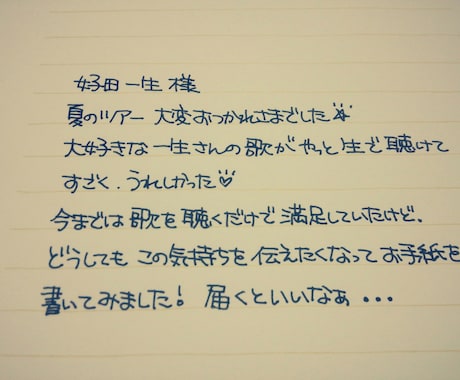 好田一生 様
夏のツアー 大変おつかれさまでした☆
大好きな一生さんの歌がやっと生で聴けて
すごく、うれしかった♡
今までは歌を聴くだけで満足していたけど、
どうしてもこの気持ちを伝えたくなってお手紙を
書いてみました! 届くといいなぁ・・・